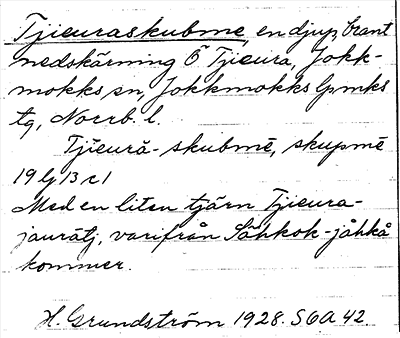 Tjieuraskubme, en djup, brant
nedskärning Ö Tjieura, Jokk-
mokks sn, Jokkmokks lpmks
tg, Norrb. l.
Tjīeurā-skubmē, skupmē
19 lj 13 c 1
Med en liten tjärn Tjieura-
jauratj, varifrån Såhkok-jåhkå
kommer.
H. Grundström 1928. SOA 42.